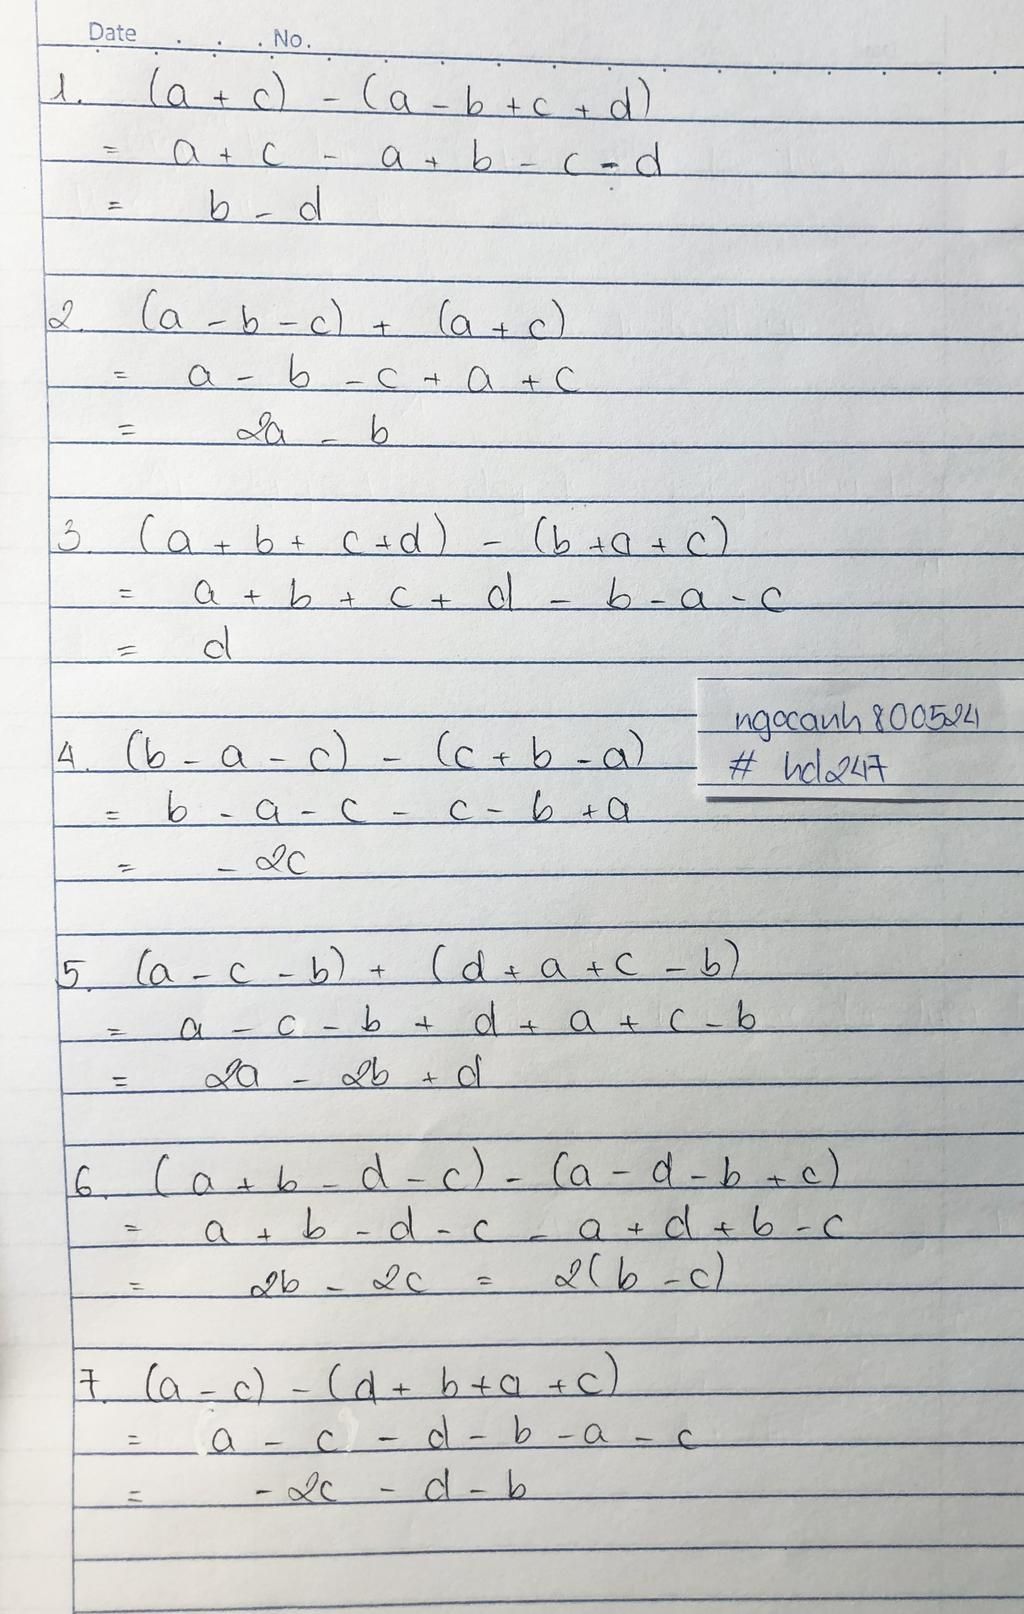 Date . . . No.
1. (a + c) - (a - b + c + d)
= a + c - a + b - c - d
= b - d
2. (a - b - c) + (a + c)
= a - b - c + a + c
= 2a - b
3. (a + b + c + d) - (b + a + c)
= a + b + c + d - b - a - c
= d
ngocanh800524
# hd247
4. (b - a - c) - (c + b - a)
= b - a - c - c - b + a
= - 2c
5. (a - c - b) + (d + a + c - b)
= a - c - b + d + a + c - b
= 2a - 2b + d
6. (a + b - d - c) - (a - d - b + c)
= a + b - d - c - a + d + b - c
= 2b - 2c = 2(b - c)
7. (a - c) - (d + b + a + c)
= a - c - d - b - a - c
= - 2c - d - b